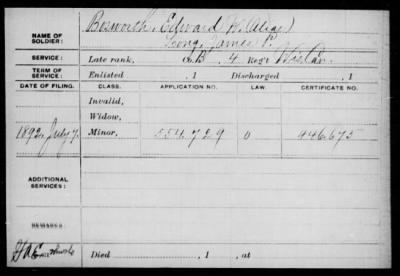 NAME OF SOLDIER: Bosworth, Edward W. (Alias)
Long, James P.
SERVICE: Late rank, Co B, 4 Reg't Wis Cav.
TERM OF SERVICE: Enlisted , 1 Discharged , 1
DATE OF FILING. CLASS. APPLICATION NO. LAW. CERTIFICATE NO.
Invalid,
Widow,
1892, July 7. Minor, 554.729 0 446.675
ADDITIONAL SERVICES:
REMARKS:
Died , 1 , at